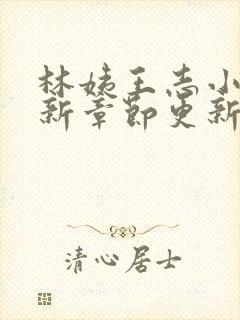 林姨王志小
新章节更新
清心居士